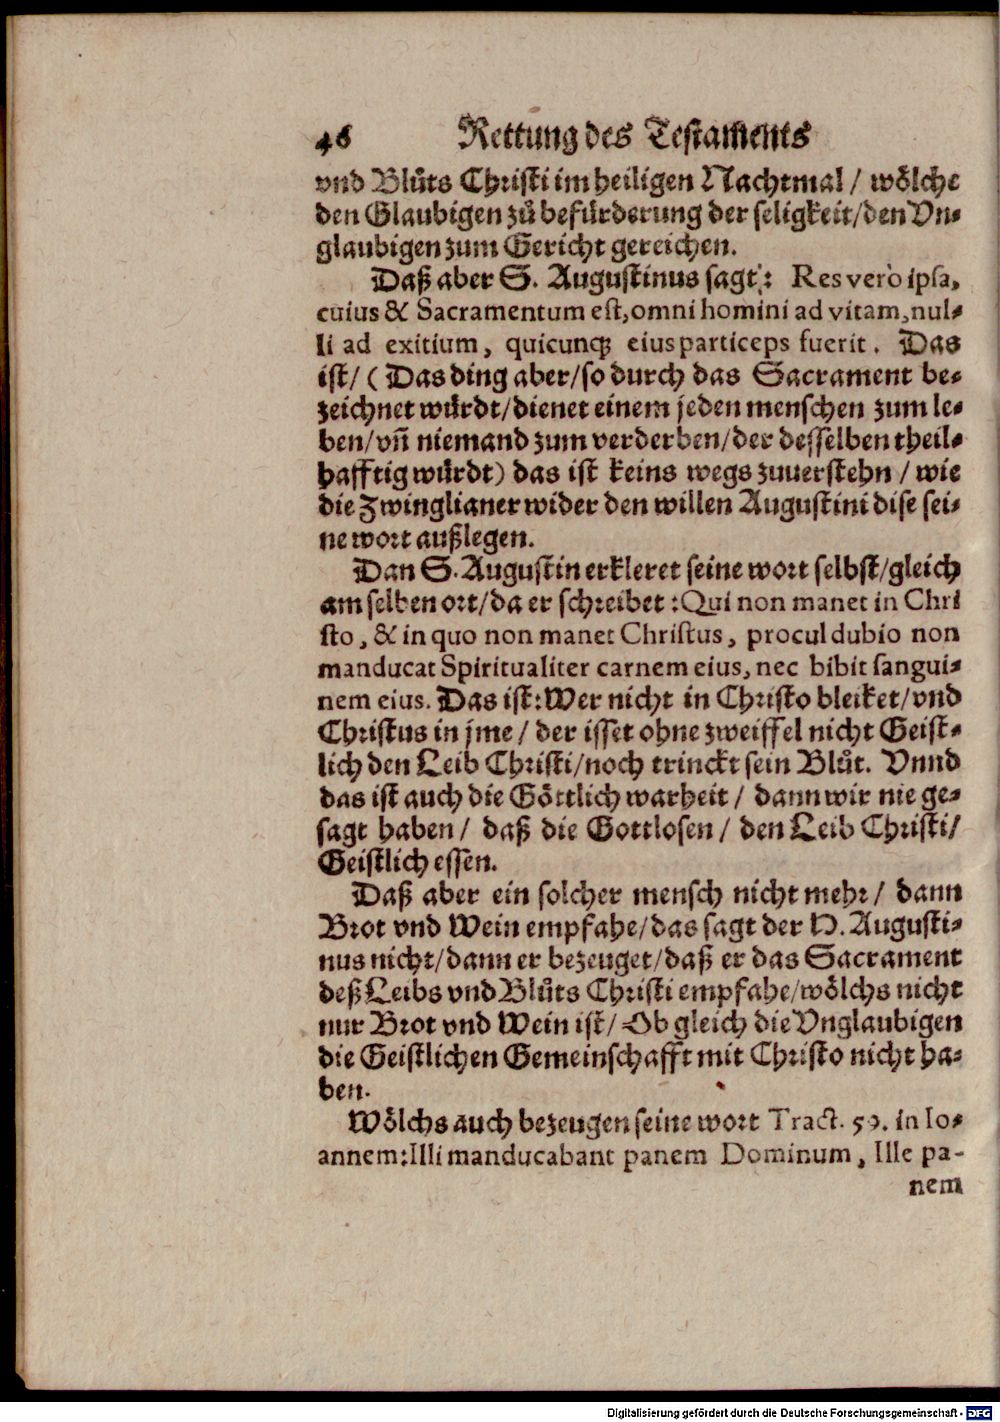 46 Rettung des Testaments
vnd Blůts Christi im heiligen Nachtmal / wölche
den Glaubigen zů befürderung der seligkeit/den Vn-
glaubigen zum Gericht gereichen.
Daß aber S. Augustinus sagt: Res verò ipsa,
cuius & Sacramentum est, omni homini ad vitam, nul-
li ad exitium, quicunq; eius particeps fuerit. Das
ist/ (Das ding aber/so durch das Sacrament be-
zeichnet würdt/dienet einem jeden menschen zum le-
ben/vñ niemand zum verderben/der desselben theil-
hafftig würdt) das ist keins wegs zuuerstehn / wie
die Zwinglianer wider den willen Augustini dise sei-
ne wort außlegen.
Dan S. Augustin erkleret seine wort selbst/gleich
am selben ort/da er schreibet: Qui non manet in Chri
sto, & in quo non manet Christus, procul dubio non
manducat Spiritualiter carnem eius, nec bibit sangui-
nem eius. Das ist: Wer nicht in Christo bleibet/vnd
Christus in jme / der isset ohne zweiffel nicht Geist-
lich den Leib Christi/noch trinckt sein Blůt. Vnnd
das ist auch die Göttlich warheit / dann wir nie ge-
sagt haben / daß die Gottlosen / den Leib Christi/
Geistlich essen.
Daß aber ein solcher mensch nicht mehr / dann
Brot vnd Wein empfahe/das sagt der H. Augusti-
nus nicht/dann er bezeuget/daß er das Sacrament
deß Leibs vnd Blůts Christi empfahe/wölchs nicht
nur Brot vnd Wein ist/ Ob gleich die Vnglaubigen
die Geistlichen Gemeinschafft mit Christo nicht ha-
ben.
Wölchs auch bezeugen seine wort Tract. 59. in Io-
annem: Illi manducabant panem Dominum, Ille pa-
nem
Digitalisierung gefördert durch die Deutsche Forschungsgemeinschaft - DFG